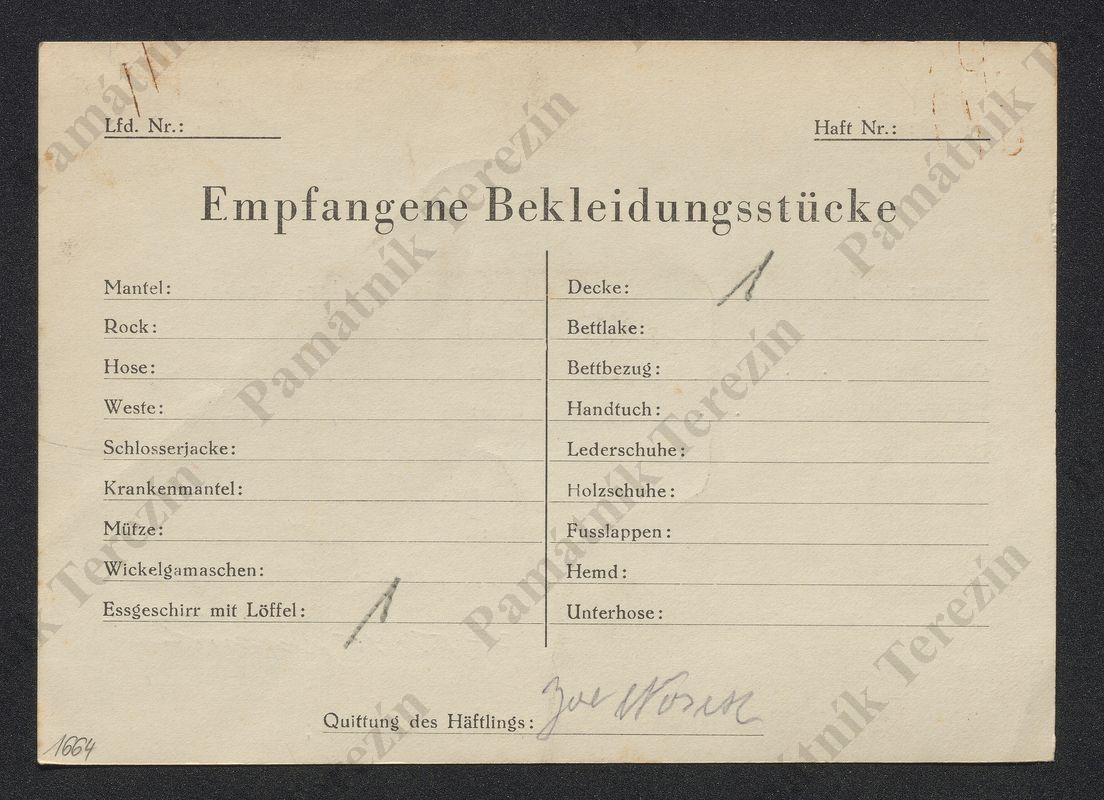 Lfd. Nr.:
Haft Nr.:
Empfangene Bekleidungsstücke
Mantel:
Rock:
Hose:
Weste:
Schlosserjacke:
Krankenmantel:
Mütze:
Wickelgamaschen:
Essgeschirr mit Löffel: 1
Decke: 1
Bettlake:
Bettbezug:
Handtuch:
Lederschuhe:
Holzschuhe:
Fusslappen:
Hemd:
Unterhose:
Quittung des Häftlings:
1664
Památník Terezín
Památník Terezín
Památník Terezín